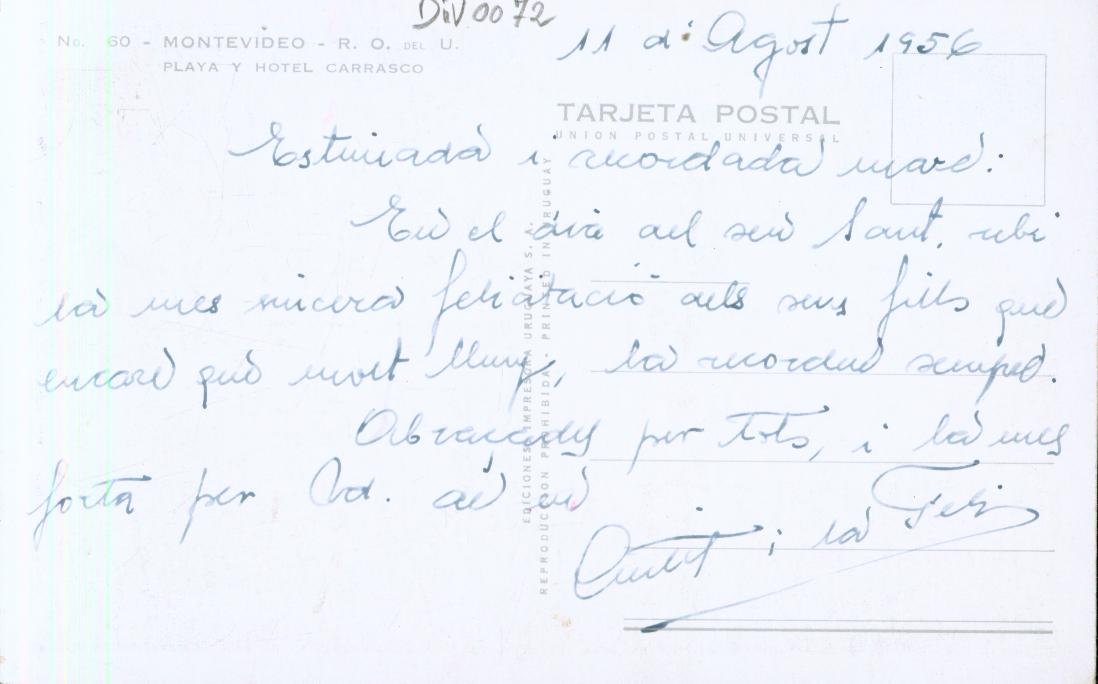 DiV 00 72
No. 60 - MONTEVIDEO - R. O. DEL U.
PLAYA Y HOTEL CARRASCO
11 d'Agost 1956
TARJETA POSTAL
UNION POSTAL UNIVERSAL
Estimada i recordada mare:
En el dia del seu Sant, rebi
la mes sincera felicitació dels seus fills que
encare que molt lluny, la recorden sempre.
Abraçades per tots, i la mes
forta per Vd. de en
i la Feli
EDICIONES IMPRESORA URUGUAYA S. A.
REPRODUCCION PROHIBIDA - PRINTED IN URUGUAY